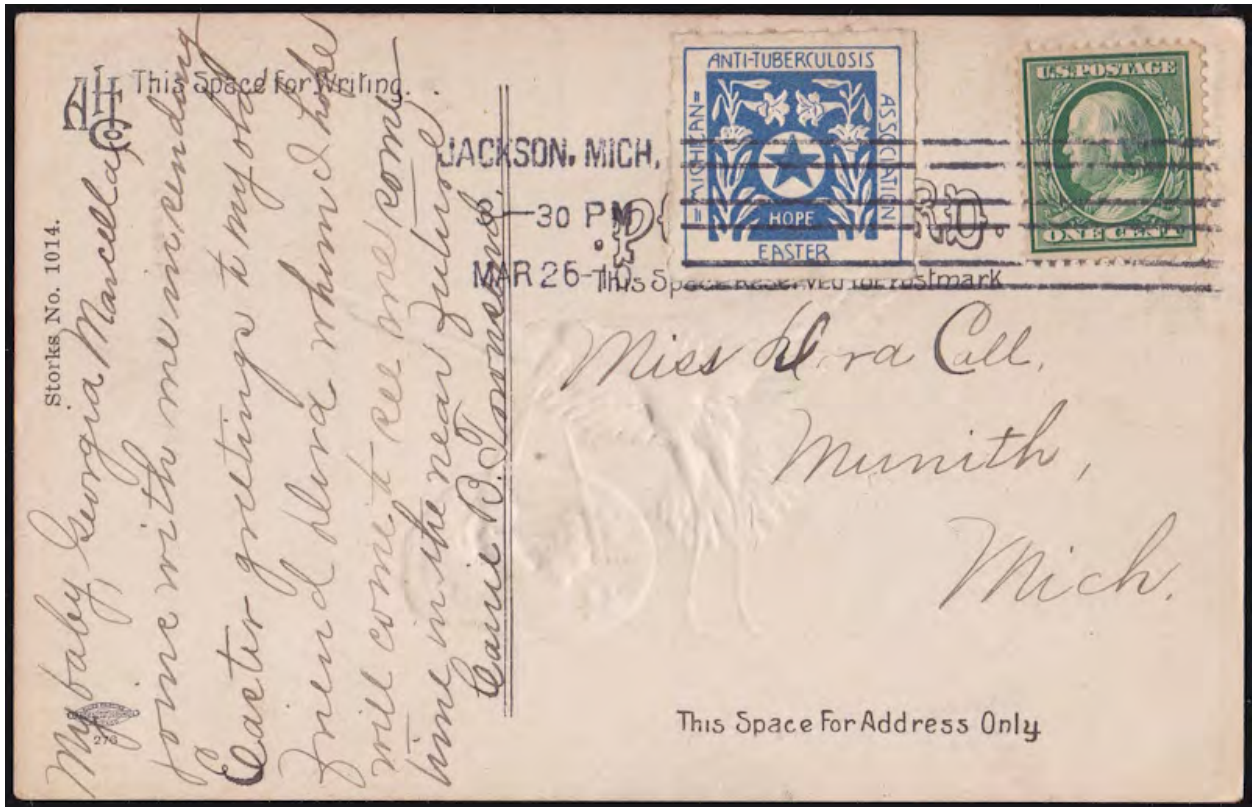 AH Co
This Space for Writing.
Storks No. 1014.
My baby, Georgia Marcella,
joins with me in sending
Easter greetings to my old
friend whom I hope
will come to see me some
time in the near future
Carrie B. Townsend.
276
JACKSON, MICH.
30 PM
MAR 26-10
ANTI-TUBERCULOSIS
MICHIGAN
ASSOCIATION
HOPE
EASTER
U.S. POSTAGE
ONE CENT
This Space Reserved for Postmark
Miss Call,
Munith,
Mich.
This Space For Address Only